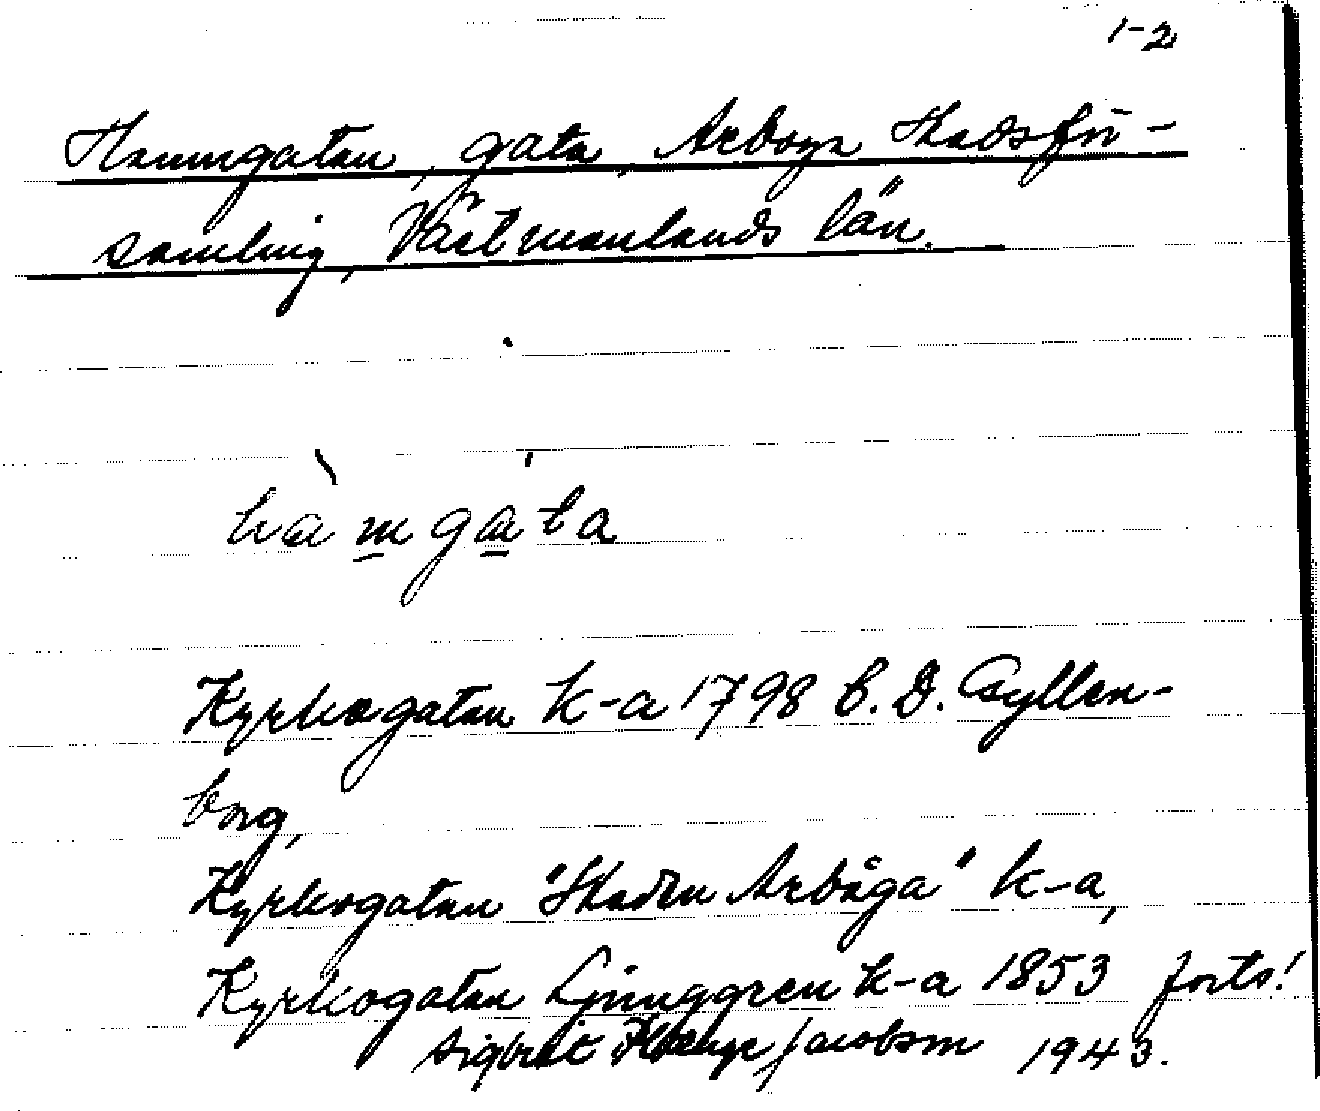 1-2
Hamngatan, gata, Arboga Stadsför-
samling, Västmanlands län.
hàmgáta
Kyrkogatan k-a 1798 B. D. Gyllen-
borg,
Kyrkogatan "Staden Arbåga" k-a,
Kyrkogatan Ljunggren k-a 1853 forts!
Sigbrit Jacobson 1943.